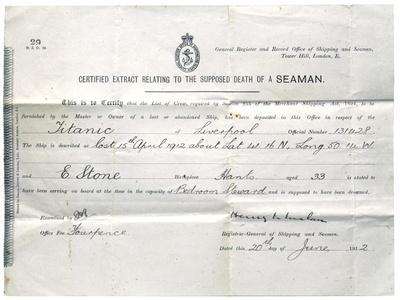 29
General Register and Record Office of Shipping and Seamen,
Tower Hill, London, E.
CERTIFIED EXTRACT RELATING TO THE SUPPOSED DEATH OF A SEAMAN.
This is to Certify that the List of Crew, required by Section 255 of the Merchant Shipping Act, 1894, to be
furnished by the Master or Owner of a lost or abandoned Ship, has been deposited in this Office in respect of the
Titanic of Liverpool Official Number 131428.
The Ship is described as lost 15th April 1912 about Lat 41.16 N. Long 50.14 W
and E Stone Birthplace Hants aged 33 is stated to
have been serving on board at the time in the capacity of Bedroom Steward and is supposed to have been drowned.
Examined by
Office Fee Fourpence
Registrar-General of Shipping and Seamen.
Dated this 20th day of June 1912